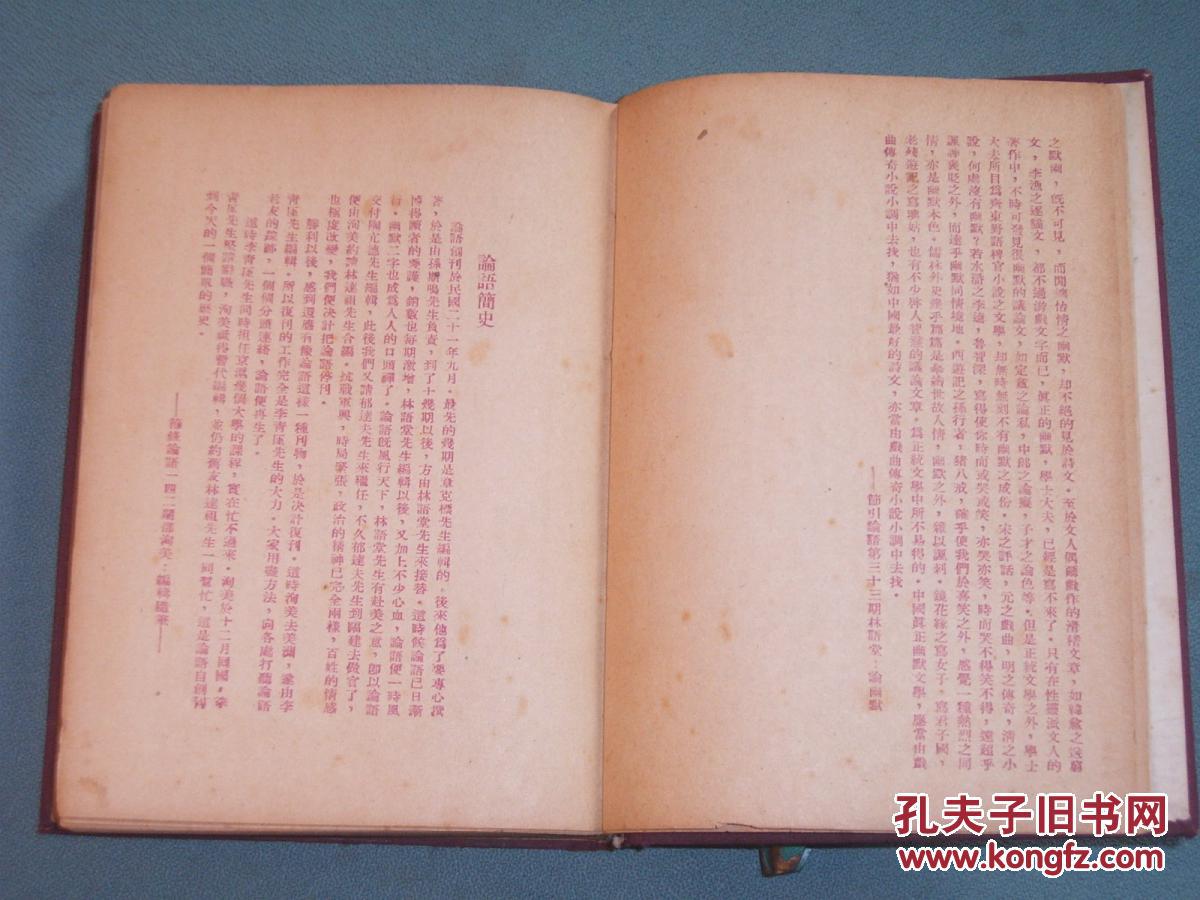 之默幽，既不可見，而閒適怡情之幽默，却不絕的見於詩文。至於文人偶爾戲作的滑稽文章，如韓愈之送窮
文，李漁之逐貓文，都不過游戲文字而已。眞正的幽默，學士大夫，已經是寫不來了。只有在性靈派文人的
著作中，不時可發見很幽默的議論文，如定盦之論私，中郎之論癡，子才之論色等。但是正統文學之外，學士
大夫所目爲齊東野語稗官小說之文學，却無時無刻不有幽默之成份。宋之評話，元之戲曲，明之傳奇，清之小
說，何處沒有幽默？若水滸之李逵，魯智深，寫得使你時而或哭或笑，亦哭亦笑，時而哭不得笑不得，遠超乎
諷諫褒貶之外，而達乎幽默同情境地。西遊記之孫行者，豬八戒，確乎使我們於喜笑之外，感覺一種熱烈之同
情，亦是幽默本色。儒林外史幾乎篇篇是摹繪世故人情，幽默之外，雜以諷刺。鏡花緣之寫女子，寫君子國，
老殘遊記之寫璵姑，也有不少啓人智慧的議論文章。爲正統文學中所不易得的。中國眞正幽默文學，應當由戲
曲傳奇小說小調中去找，猶如中國最好的詩文，亦當由戲曲傳奇小說小調中去找。
——節引論語第三十三期林語堂：論幽默
論語簡史
論語創刊於民國二十一年九月。最先的幾期是章克標先生編輯的。後來他爲了要專心撰
著，於是由孫斯鳴先生負責，到了十幾期以後，方由林語堂先生來接替。這時候論語已日漸
博得讀者的愛護，銷數也每期激增，林語堂先生編輯以後，又加上不少心血，論語便一時風
行。幽默二字也成爲人人的口頭禪了。論語旣風行天下，林語堂先生有赴美之意，卽以論語
交付陶亢德先生編輯，此後我們又請郁達夫先生來擔任，不久郁達夫先生到福建去做官了，
便由洵美約請林達祖先生合編。抗戰軍興，時局緊張，政治的精神已完全兩樣，百姓的情感
也極度改變，我們便決計把論語停刊。
勝利以後，感到還應有像論語這樣一種刊物，於是決計復刊。這時洵美去美洲，遂由李
青崖先生編輯。所以復刊的工作完全是李青崖先生的大力。大家用盡方法，向各處打聽論語
老友的踪跡，一個個分頭連絡，論語便再生了。
這時李青崖先生同時担任京滬幾個大學的課程，實在忙不過來。洵美於十二月囘國。李
青崖先生堅請辭職，洵美祇得暫代編輯，並仍約舊友林達祖先生一同幫忙，這是論語自創刊
到今天的一個簡單的歷史。
——節錄論語一四二期邵洵美：編輯隨筆——
孔夫子旧书网
www.kongfz.com